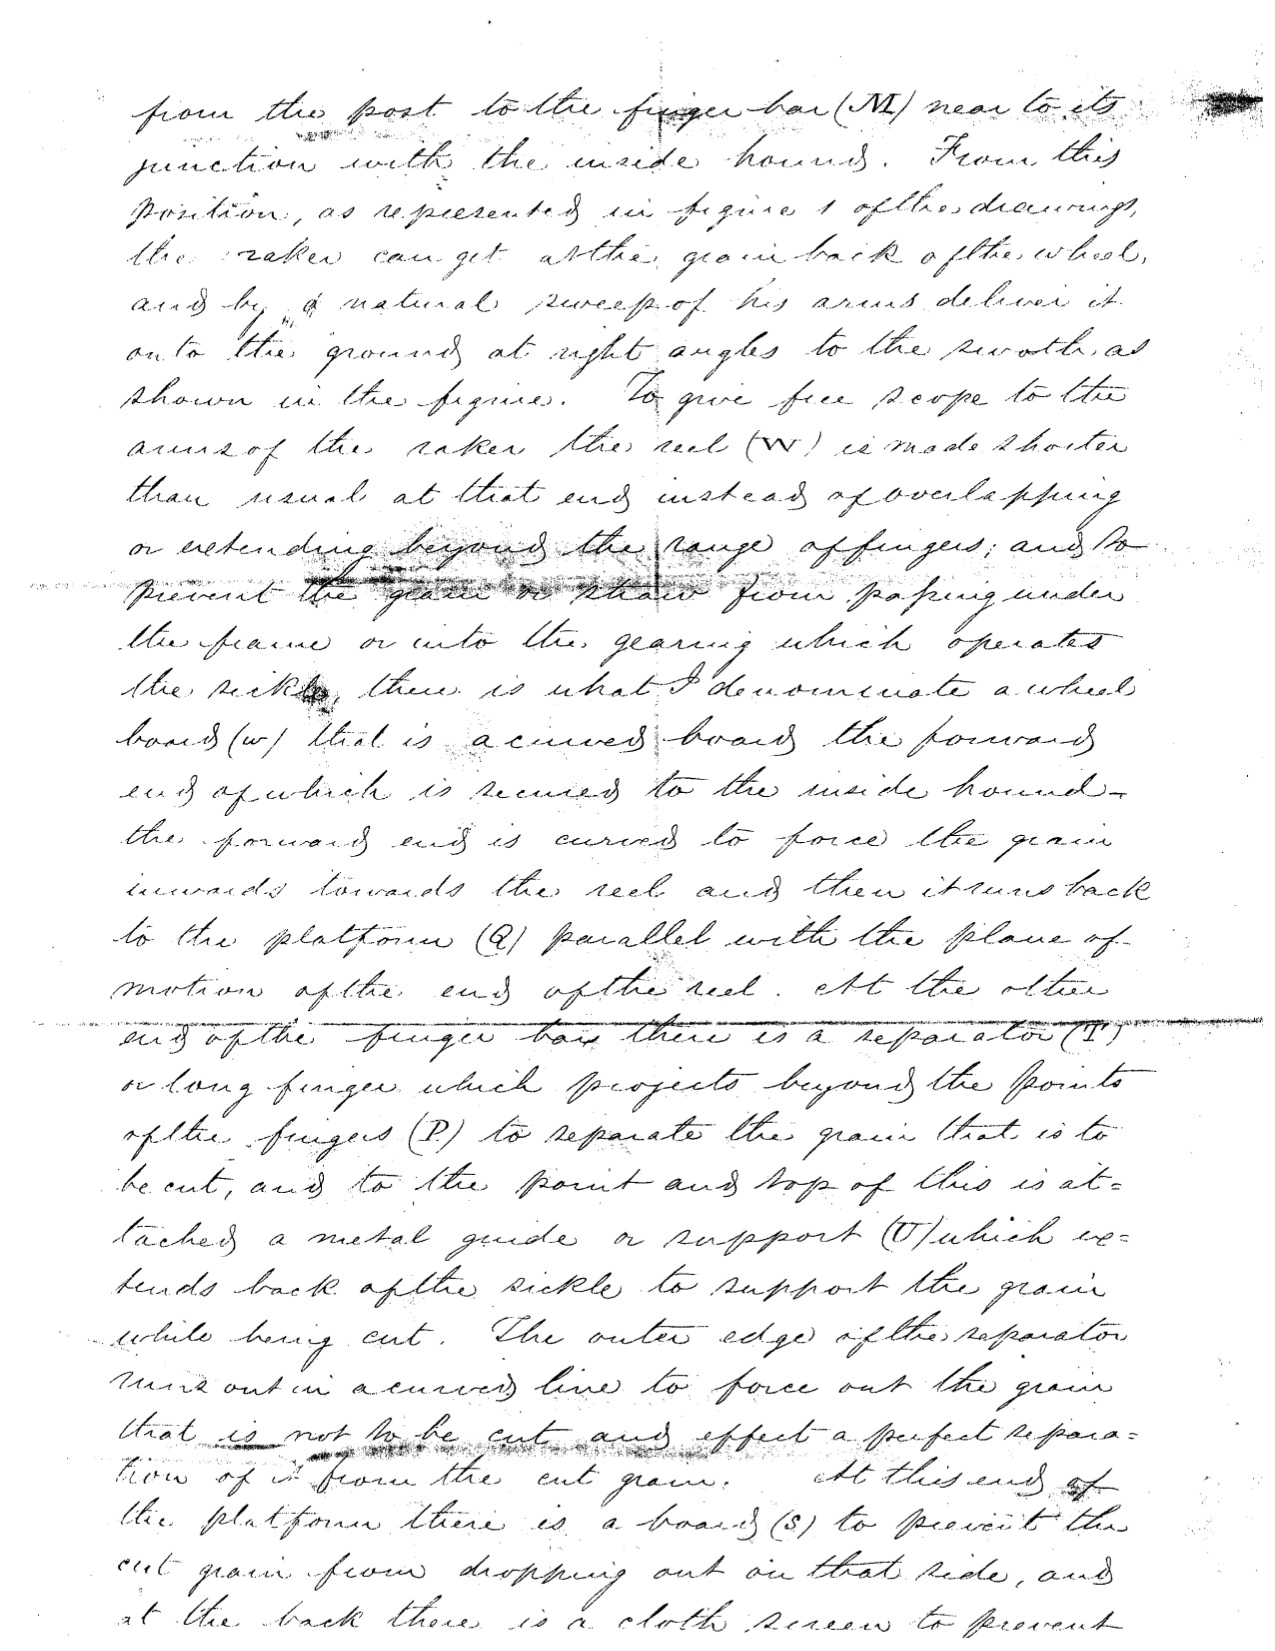 from the post to the finger bar (M) near to its
junction with the inside hound. From this
position, as represented in figure 1 of the drawings,
the raker can get at the grain back of the wheel,
and by a natural sweep of his arms deliver it
onto the ground at right angles to the swath, as
shown in the figure. To give free scope to the
arms of the raker the reel (W) is made shorter
than usual at that end instead of overlapping
or extending beyond the range of fingers; and to
prevent the grain or straw from passing under
the frame or into the gearing which operates
the sickle, there is what I denominate a wheel
board (w) that is a curved board the forward
end of which is secured to the inside hound -
the forward end is curved to force the grain
inwards towards the reel and then it runs back
to the platform (Q) parallel with the plane of
motion of the end of the reel. At the other
end of the finger bar there is a separator (T)
or long finger which projects beyond the points
of the fingers (P) to separate the grain that is to
be cut, and to the point and top of this is at=
tached a metal guide or support (U) which ex=
tends back of the sickle to support the grain
while being cut. The outer edge of the separator
runs out in a curved line to force out the grain
that is not to be cut and effect a perfect separa=
tion of it from the cut grain. At this end of
the platform there is a board (S) to prevent the
cut grain from dropping out on that side, and
at the back there is a cloth screen to prevent